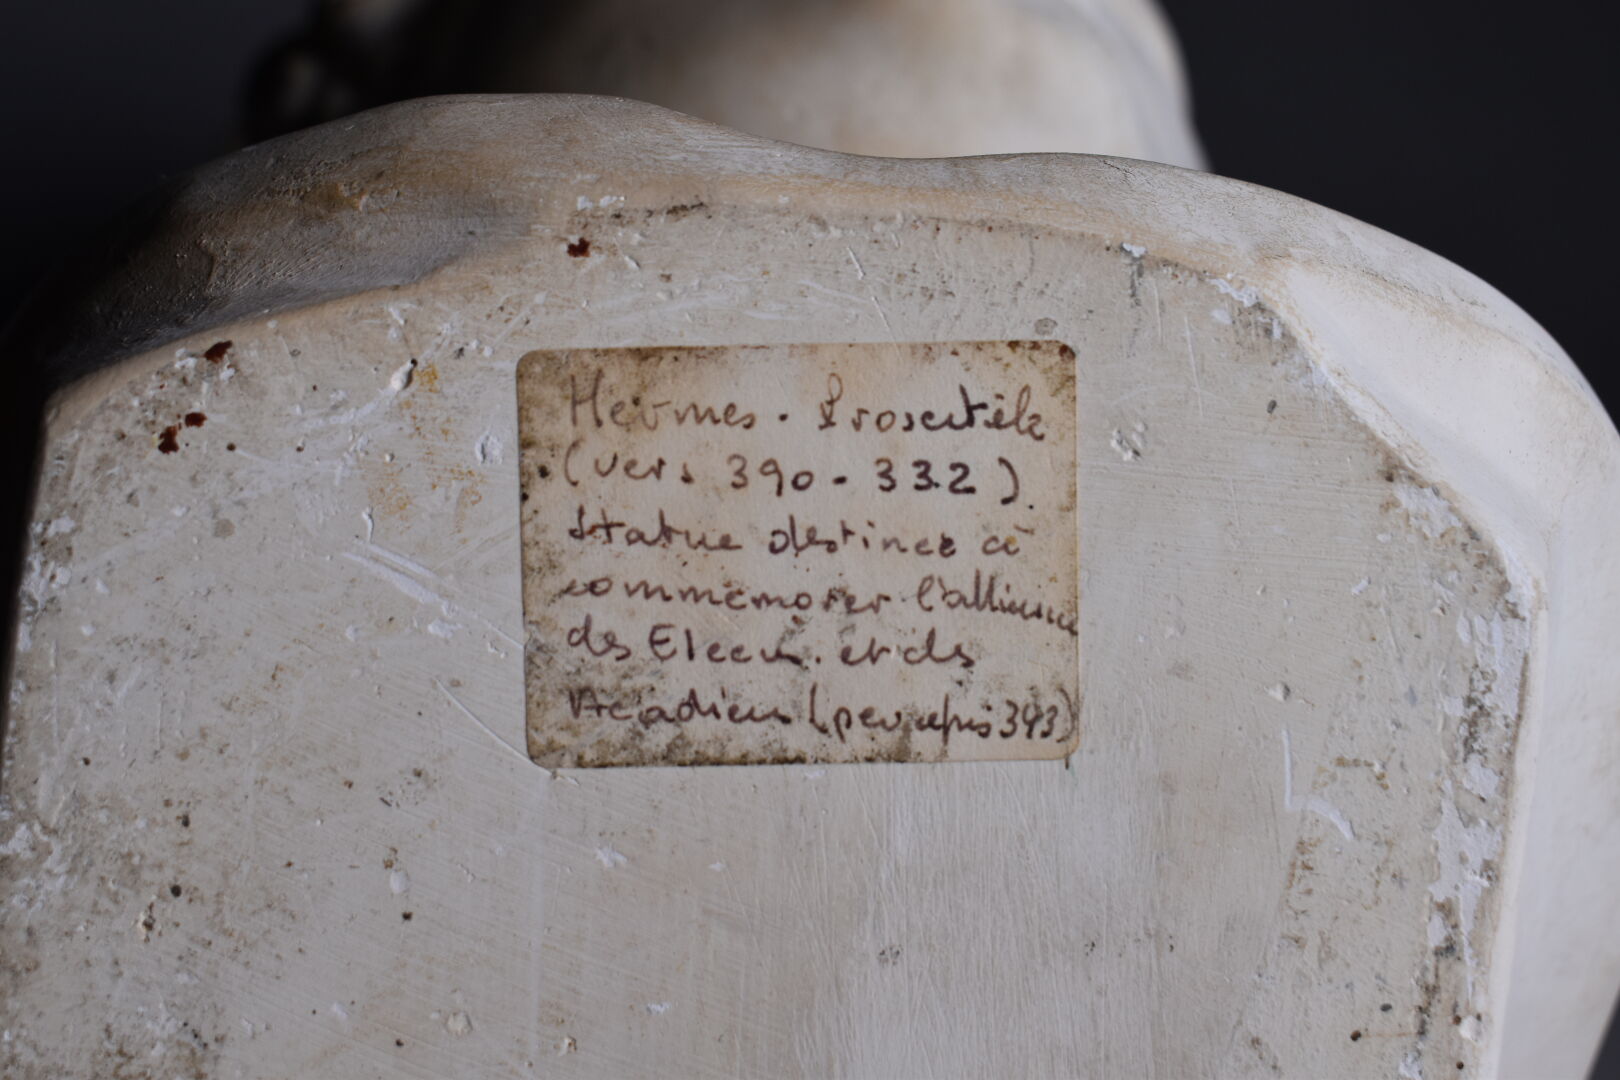 Hermes. Proscitèle
(vers 390-332).
Statue destinee à
commemorer l'alliance
des Eleen. et des
Acadien (peu apris 343)